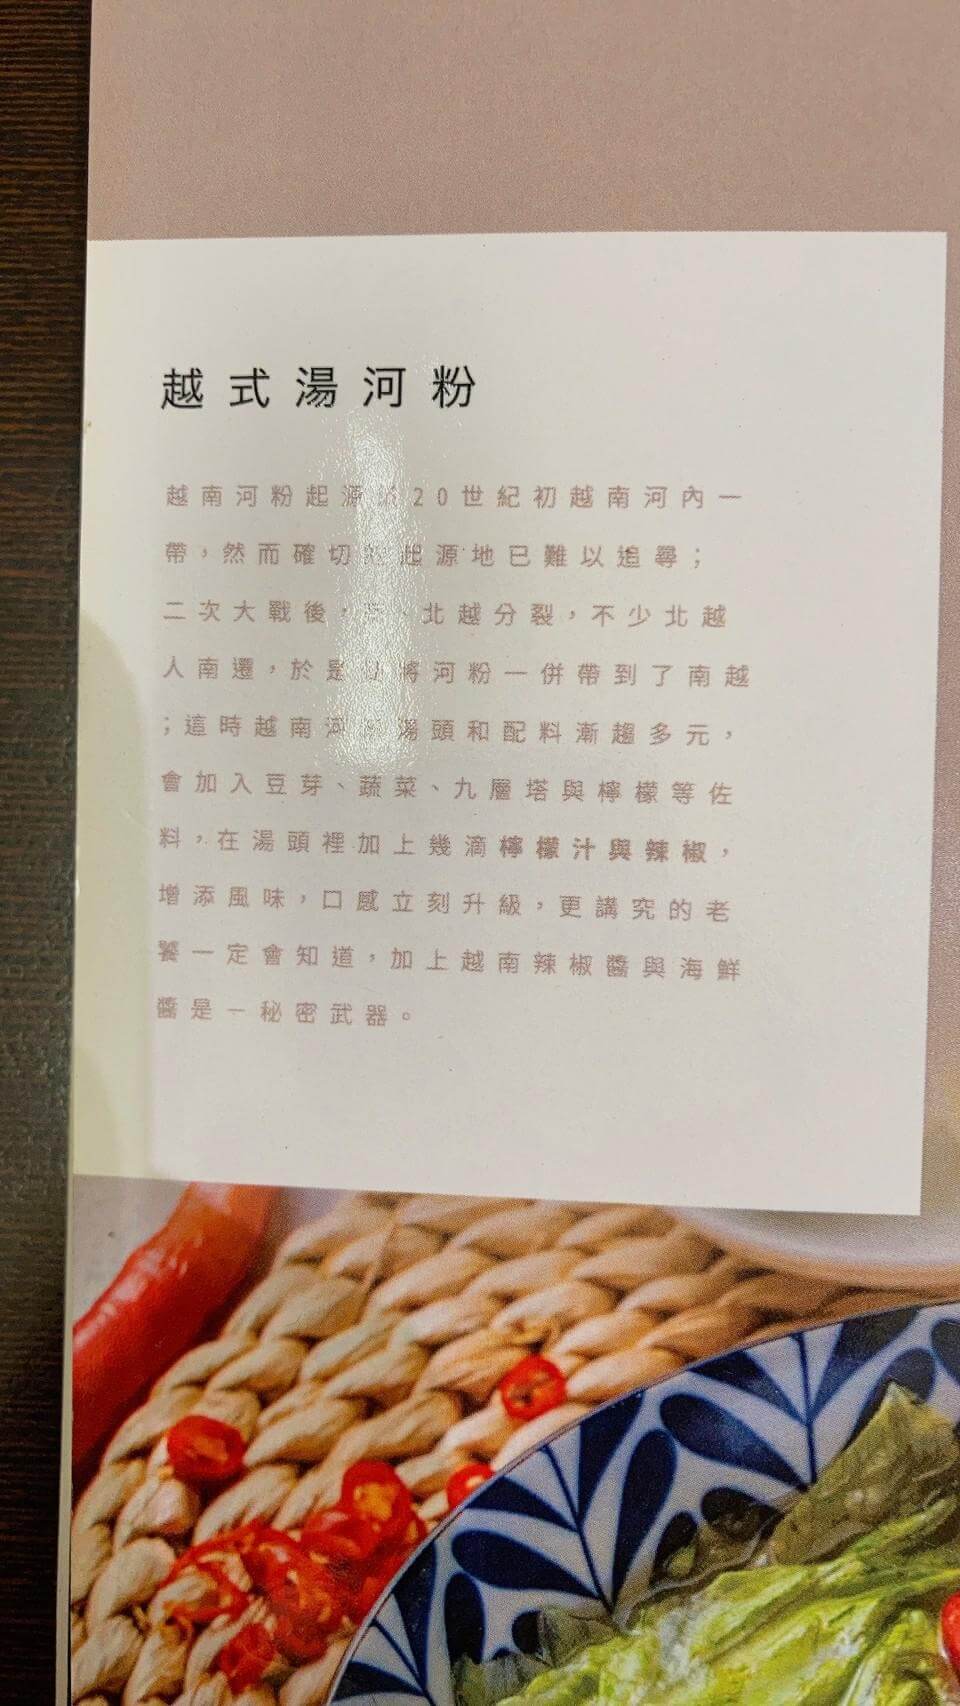 越式湯河粉
越南河粉起源於20世紀初越南河內一
帶，然而確切的起源地已難以追尋；
二次大戰後，、北越分裂，不少北越
人南遷，於是將河粉一併帶到了南越
；這時越南河湯頭和配料漸趨多元，
會加入豆芽、蔬菜、九層塔與檸檬等佐
料，在湯頭裡加上幾滴檸檬汁與辣椒，
增添風味，口感立刻升級，更講究的老
饕一定會知道，加上越南辣椒醬與海鮮
醬是一秘密武器。